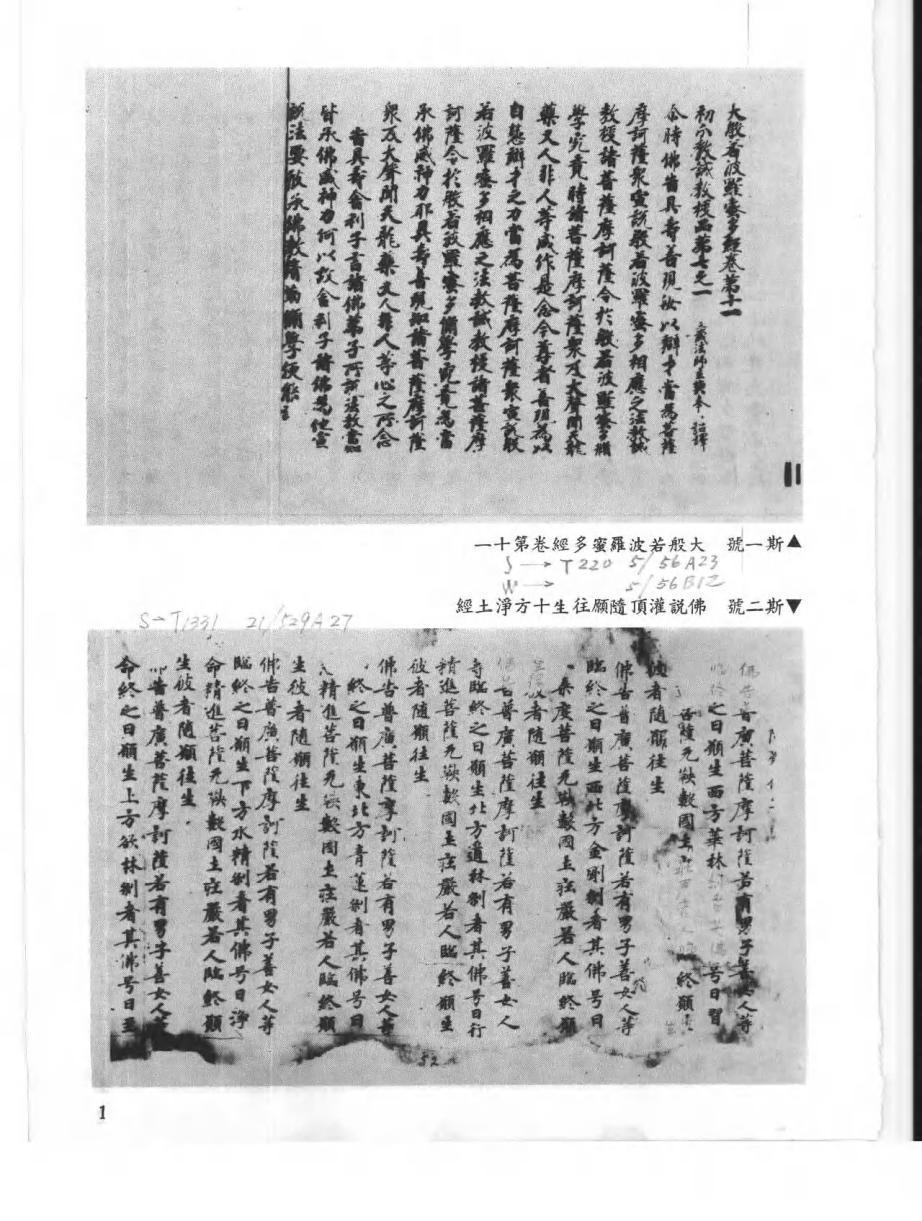 大般若波羅蜜多經卷第十一
初分教誡教授品第七之一 三藏法師玄奘奉 詔譯
尒時佛告具壽善現汝以辯才當爲菩薩
摩訶薩衆宣說般若波羅蜜多相應之法教誡
教授諸菩薩摩訶薩令於般若波羅蜜多脩
學究竟時諸菩薩摩訶薩衆及大聲聞天龍
藥叉人非人等咸作是念今尊者善現爲以
自慧辯才之力當爲菩薩摩訶薩衆宣說般
若波羅蜜多相應之法教誡教授諸菩薩摩
訶薩令於般若波羅蜜多脩學究竟爲當
承佛威神力耶具壽善現知諸菩薩摩訶薩
衆及大聲聞天龍藥叉人非人等心之所念
告具壽舍利子言諸佛弟子所說法教當知
皆承佛威神力何以故舍利子諸佛爲他宣
說法要彼承佛教精勤脩學便能
▲斯一號 大般若波羅蜜多經卷第十一
S → T220 5/56A23
W → 5/56B12
▼斯二號 佛説灌頂隨願往生十方淨土經
S → T1331 21/529A27
佛告普廣菩薩摩訶薩若有男子善女人等
臨終之日願生西方華林 号曰習
菩薩无鞅數國土 終願
彼者隨願往生
佛告普廣菩薩摩訶薩若有男子善女人等
臨終之日願生西北方金剛刹者其佛号曰
一乘度菩薩无鞅數國土莊嚴若人臨終願
生彼者隨願往生
佛告普廣菩薩摩訶薩若有男子善女人
等臨終之日願生北方道林刹者其佛号曰行
精進菩薩无鞅數國土莊嚴若人臨終願生
彼者隨願往生
佛告普廣菩薩摩訶薩若有男子善女人等
終之日願生東北方青蓮刹者其佛号曰
精進菩薩无鞅數國土莊嚴若人臨終願
生彼者隨願往生
佛告普廣菩薩摩訶薩若有男子善女人等
臨終之日願生下方水精刹者其佛号曰淨
命精進菩薩无鞅數國土莊嚴若人臨終願
生彼者隨願往生
告普廣菩薩摩訶薩若有男子善女人等
命終之日願生上方欲林刹者其佛号曰至
1